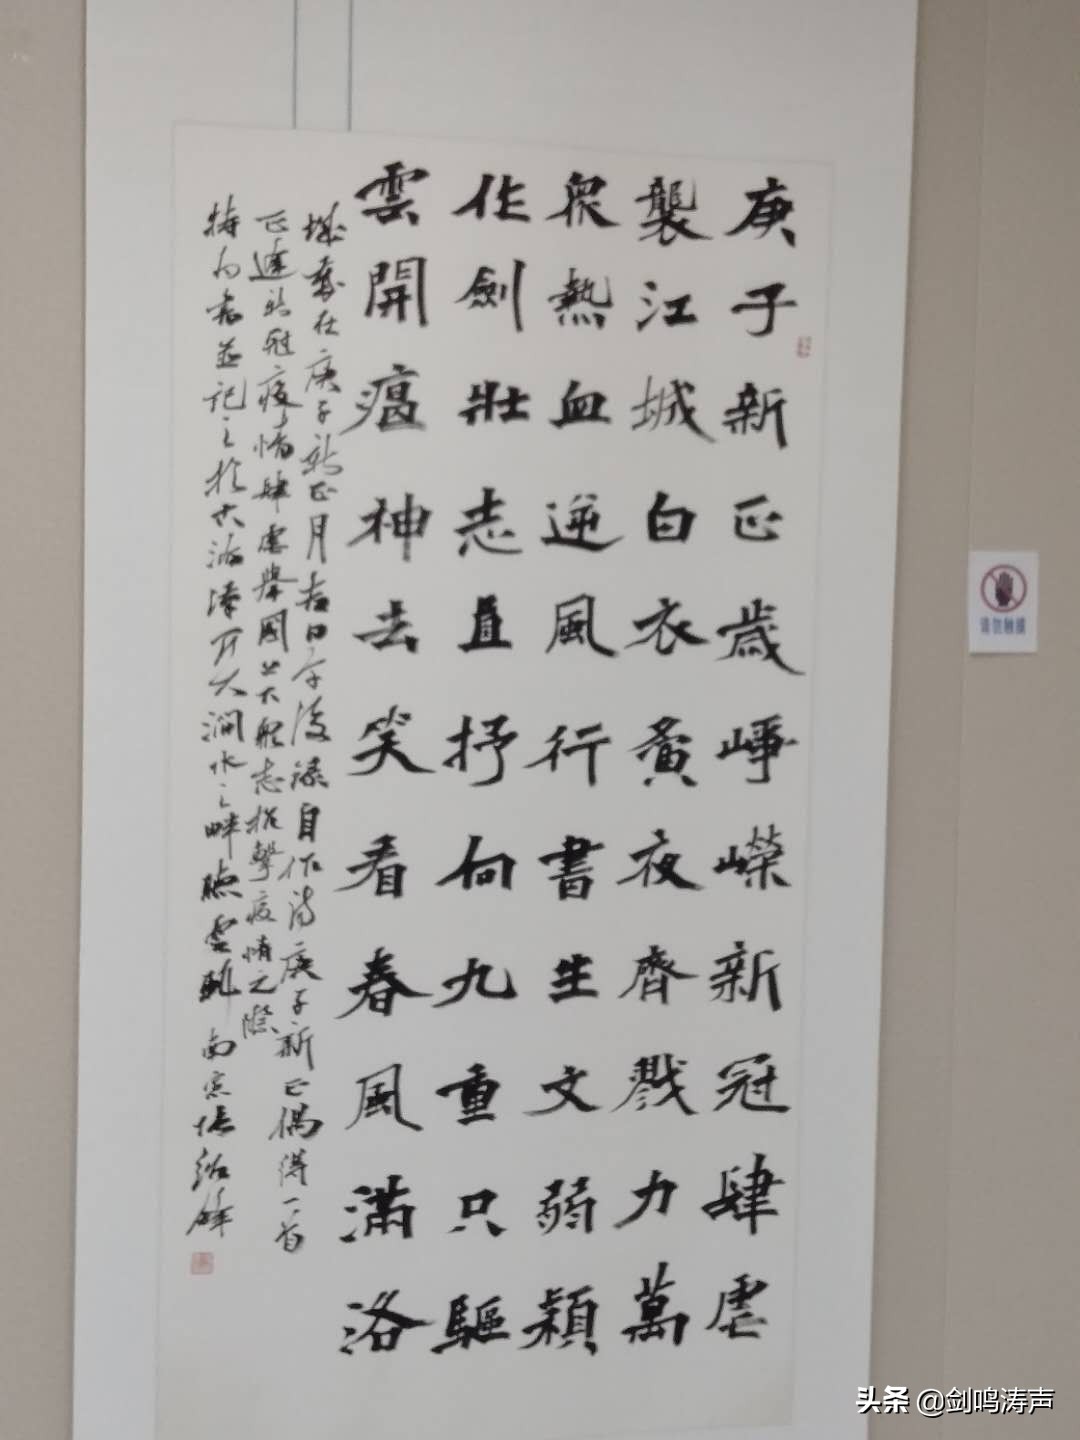 庚子新正歲崢嶸新冠肆虐
襲江城白衣夤夜齊戮力萬
衆熱血逆風行書生文弱穎
作劍壯志直抒向九重只驅
雲開瘟神去笑看春風滿洛
城歲在庚子新正月日午後錄自作詩庚子新正偶得一首
正逢新冠疫情肆虐舉國上下衆志抗擊疫情之際
特為書並記之於古洛澗水之畔聽雲軒
请勿触摸
头条 @剑鸣涛声